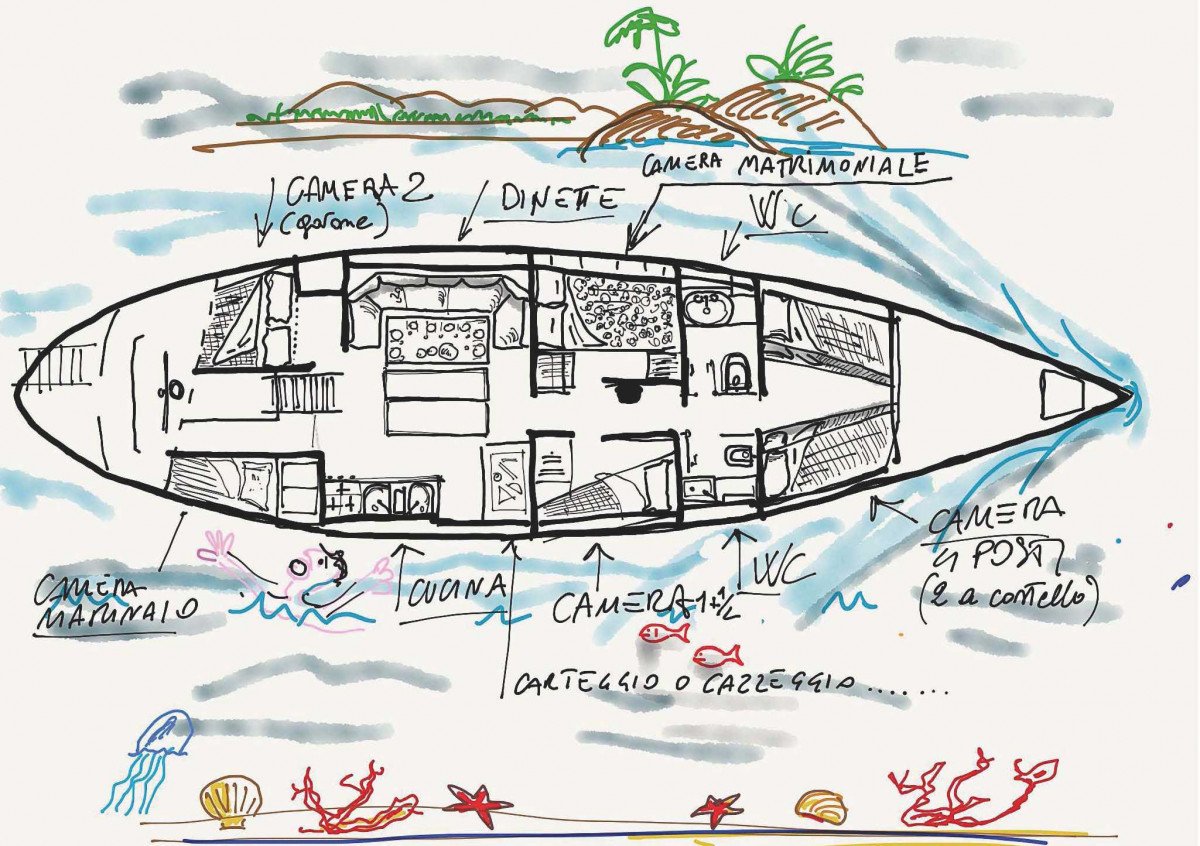 CAMERA MATRIMONIALE
CAMERA 2
DINETTE
WC
CAMERA
4 POSTI
(2 a castello)
CAMERA
MARINAIO
CUCINA
CAMERA 1+1/2
WC
CARTEGGIO O CAZZEGGIO .......